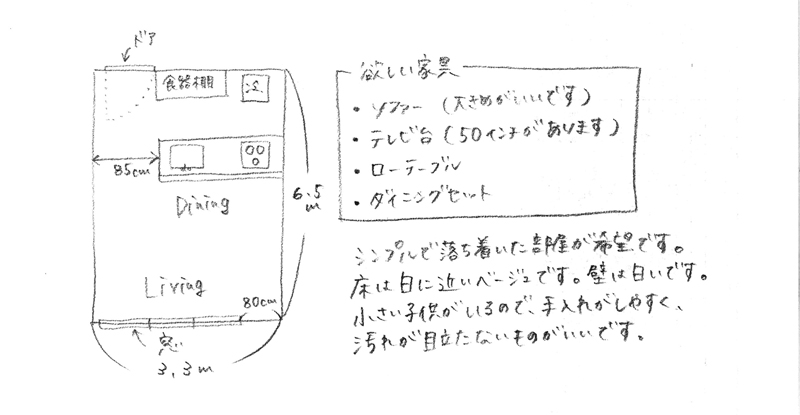 ドア
食器棚
冷
85cm
Dining
6.5
m
Living
80cm
窓
3,3m
欲しい家具
・ソファー（大きめがいいです）
・テレビ台（50インチがあります）
・ローテーブル
・ダイニングセット
シンプルで落ち着いた部屋が希望です。
床は白に近いベージュです。壁は白いです。
小さい子供がいるので、手入れがしやすく、
汚れが目立たないものがいいです。